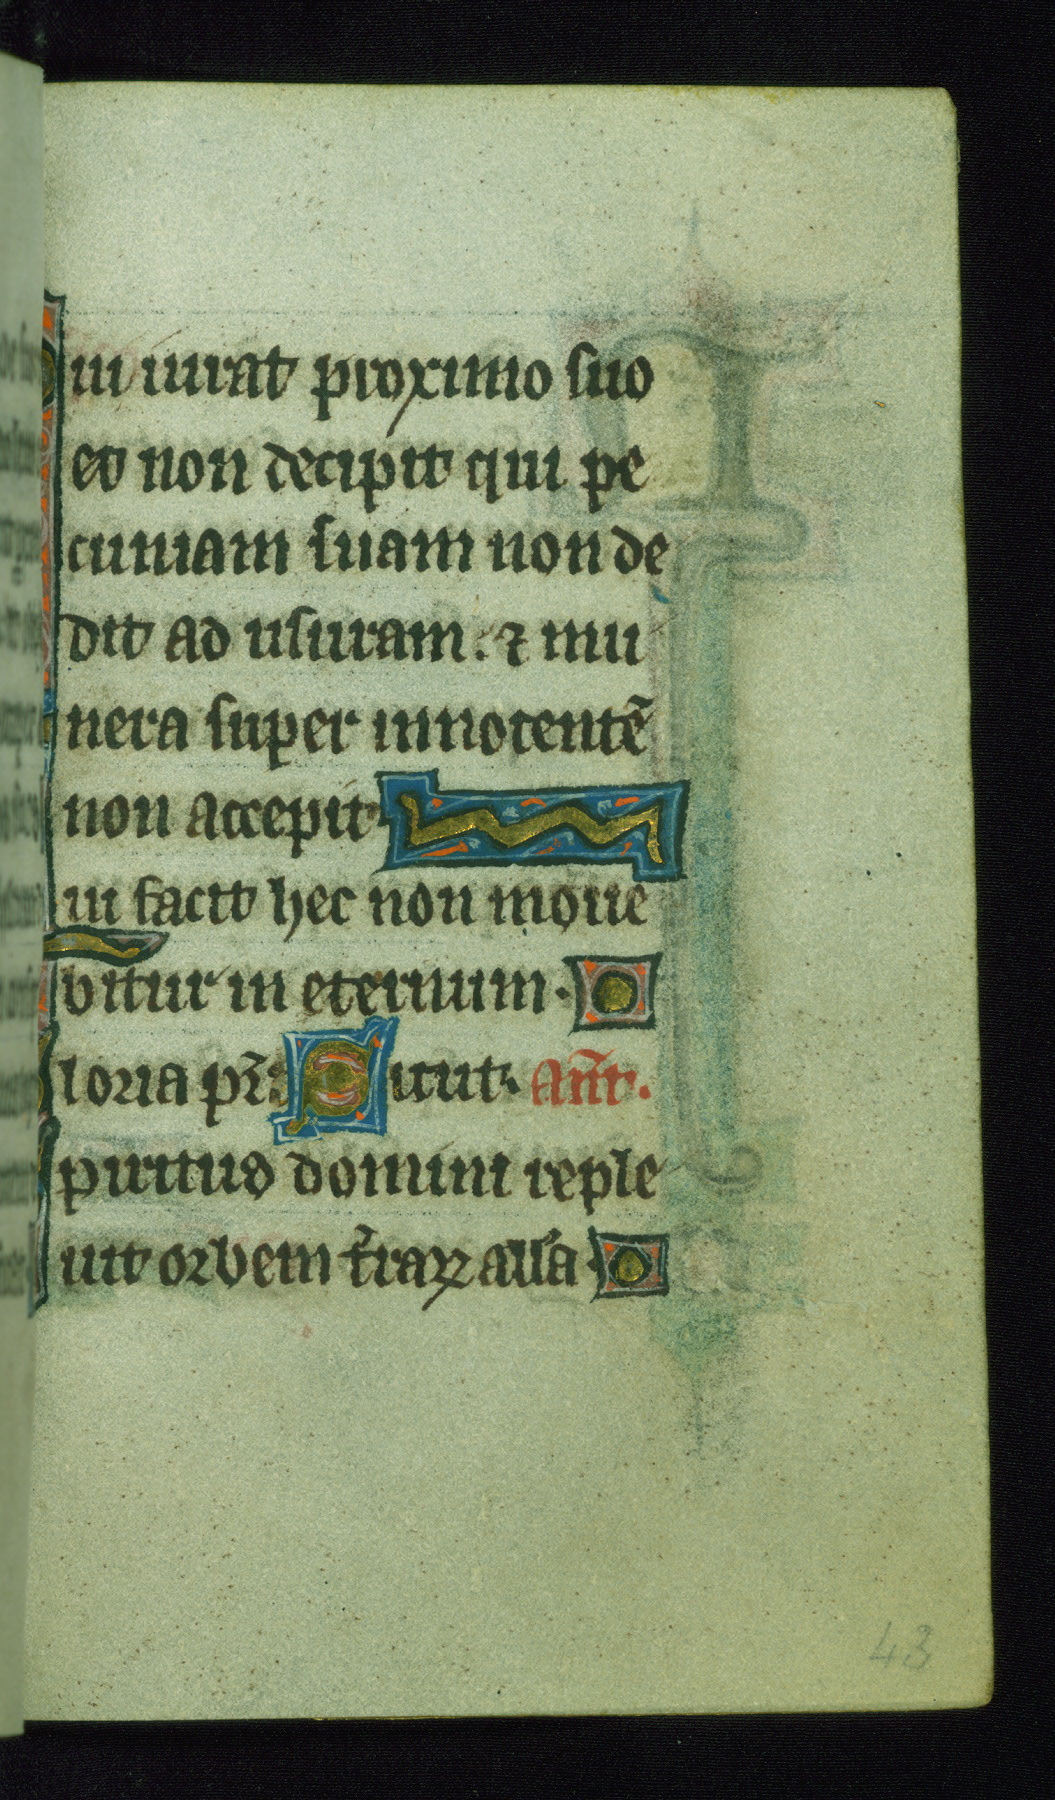 ui iurat proximo suo
et non decipit qui pe
cuniam suam non de
dit ad usuram. ⁊ mu
nera super innocentē
non accepit
ui facit hec non moue
bitur in eternum.
loria pr̄: S icut. An̄t.
piritus domini reple
uit orbem t̄raꝝ all'a
43